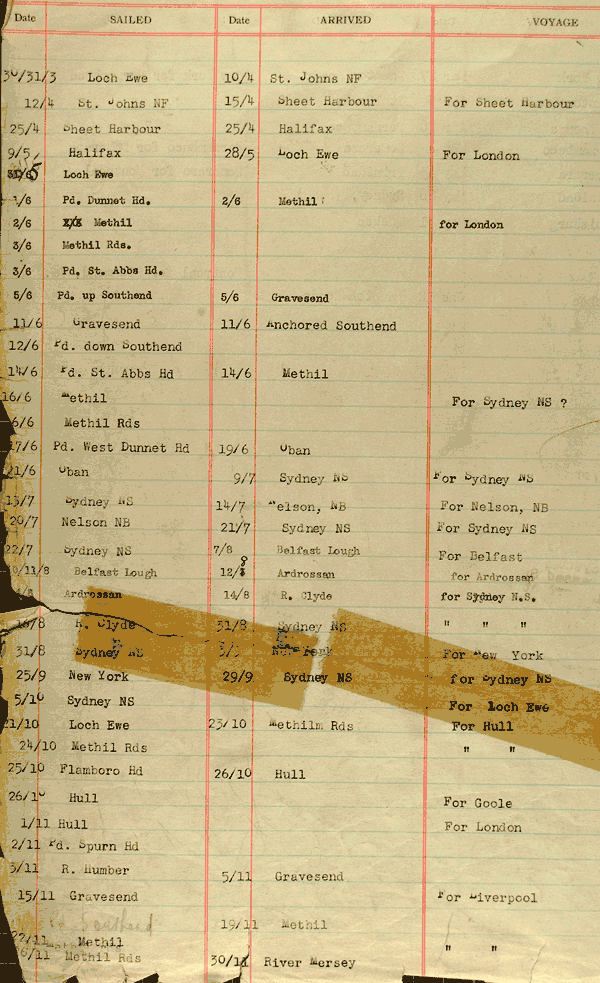 Date SAILED Date ARRIVED VOYAGE
30/31/3 Loch Ewe 10/4 St. Johns NF
12/4 St. Johns NF 15/4 Sheet Harbour For Sheet Harbour
25/4 Sheet Harbour 25/4 Halifax
9/5 Halifax 28/5 Loch Ewe For London
Loch Ewe
1/6 Pd. Dunnet Hd. 2/6 Methil
2/6 Methil for London
3/6 Methil Rds.
3/6 Pd. St. Abbs Hd.
5/6 Pd. up Southend 5/6 Gravesend
11/6 Gravesend 11/6 Anchored Southend
12/6 Pd. down Southend
14/6 Pd. St. Abbs Hd 14/6 Methil
16/6 Methil For Sydney NS ?
6/6 Methil Rds
17/6 Pd. West Dunnet Hd 19/6 Oban
21/6 Oban 9/7 Sydney NS For Sydney NS
13/7 Sydney NS 14/7 Nelson, NB For Nelson, NB
20/7 Nelson NB 21/7 Sydney NS For Sydney NS
22/7 Sydney NS 7/8 Belfast Lough For Belfast
0/11/8 Belfast Lough 12/8 Ardrossan for Ardrossan
Ardrossan 14/8 R. Clyde for Sydney N.S.
16/8 R. Clyde 31/8 Sydney NS " " "
31/8 Sydney NS New York For New York
25/9 New York 29/9 Sydney NS for Sydney NS
5/10 Sydney NS For Loch Ewe
21/10 Loch Ewe 23/10 Methilm Rds For Hull
24/10 Methil Rds " "
25/10 Flamboro Hd 26/10 Hull
26/10 Hull For Goole
1/11 Hull For London
2/11 Pd. Spurn Hd
3/11 R. Humber 5/11 Gravesend
15/11 Gravesend For Liverpool
Southend 19/11 Methil
22/11 Methil " "
26/11 Methil Rds 30/11 River Mersey